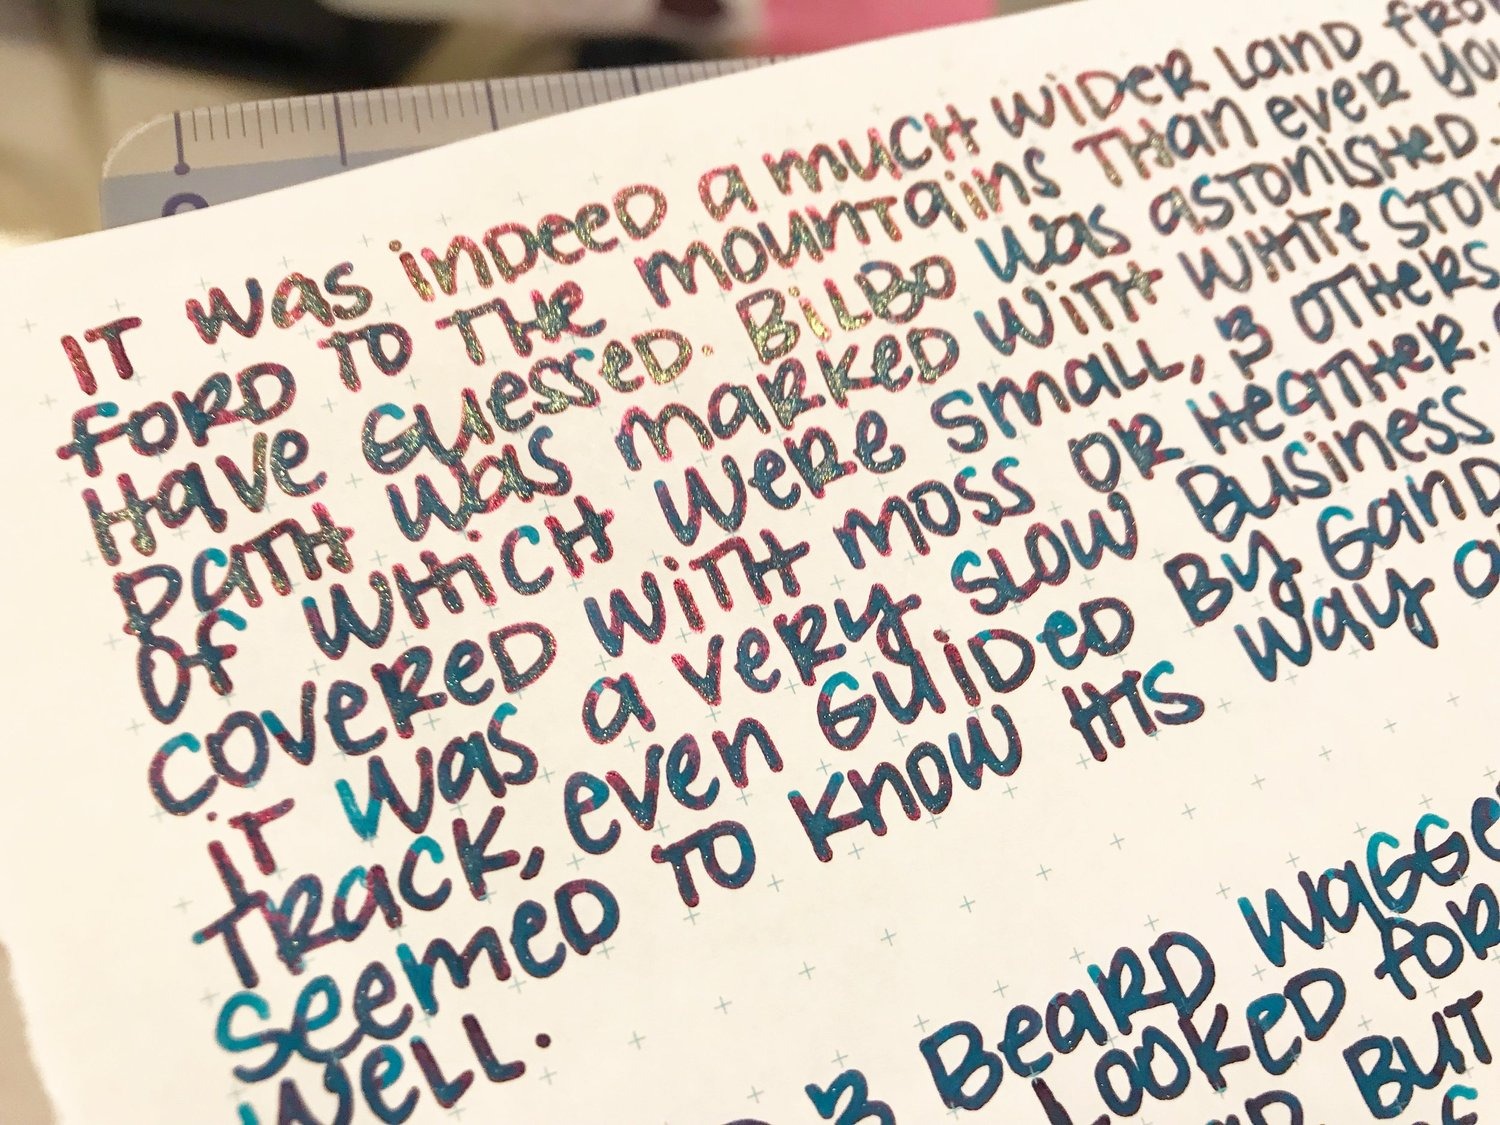 IT was indeed a much wider land fro
ford to the mountains than ever you
have guessed. Bilbo was astonished.
path was marked with white ston
of which were small, & others
covered with moss or heather.
it was a very slow business
track, even guided by Gand
seemed to know his way
well.
& beard wagge
looked for
but
of
0